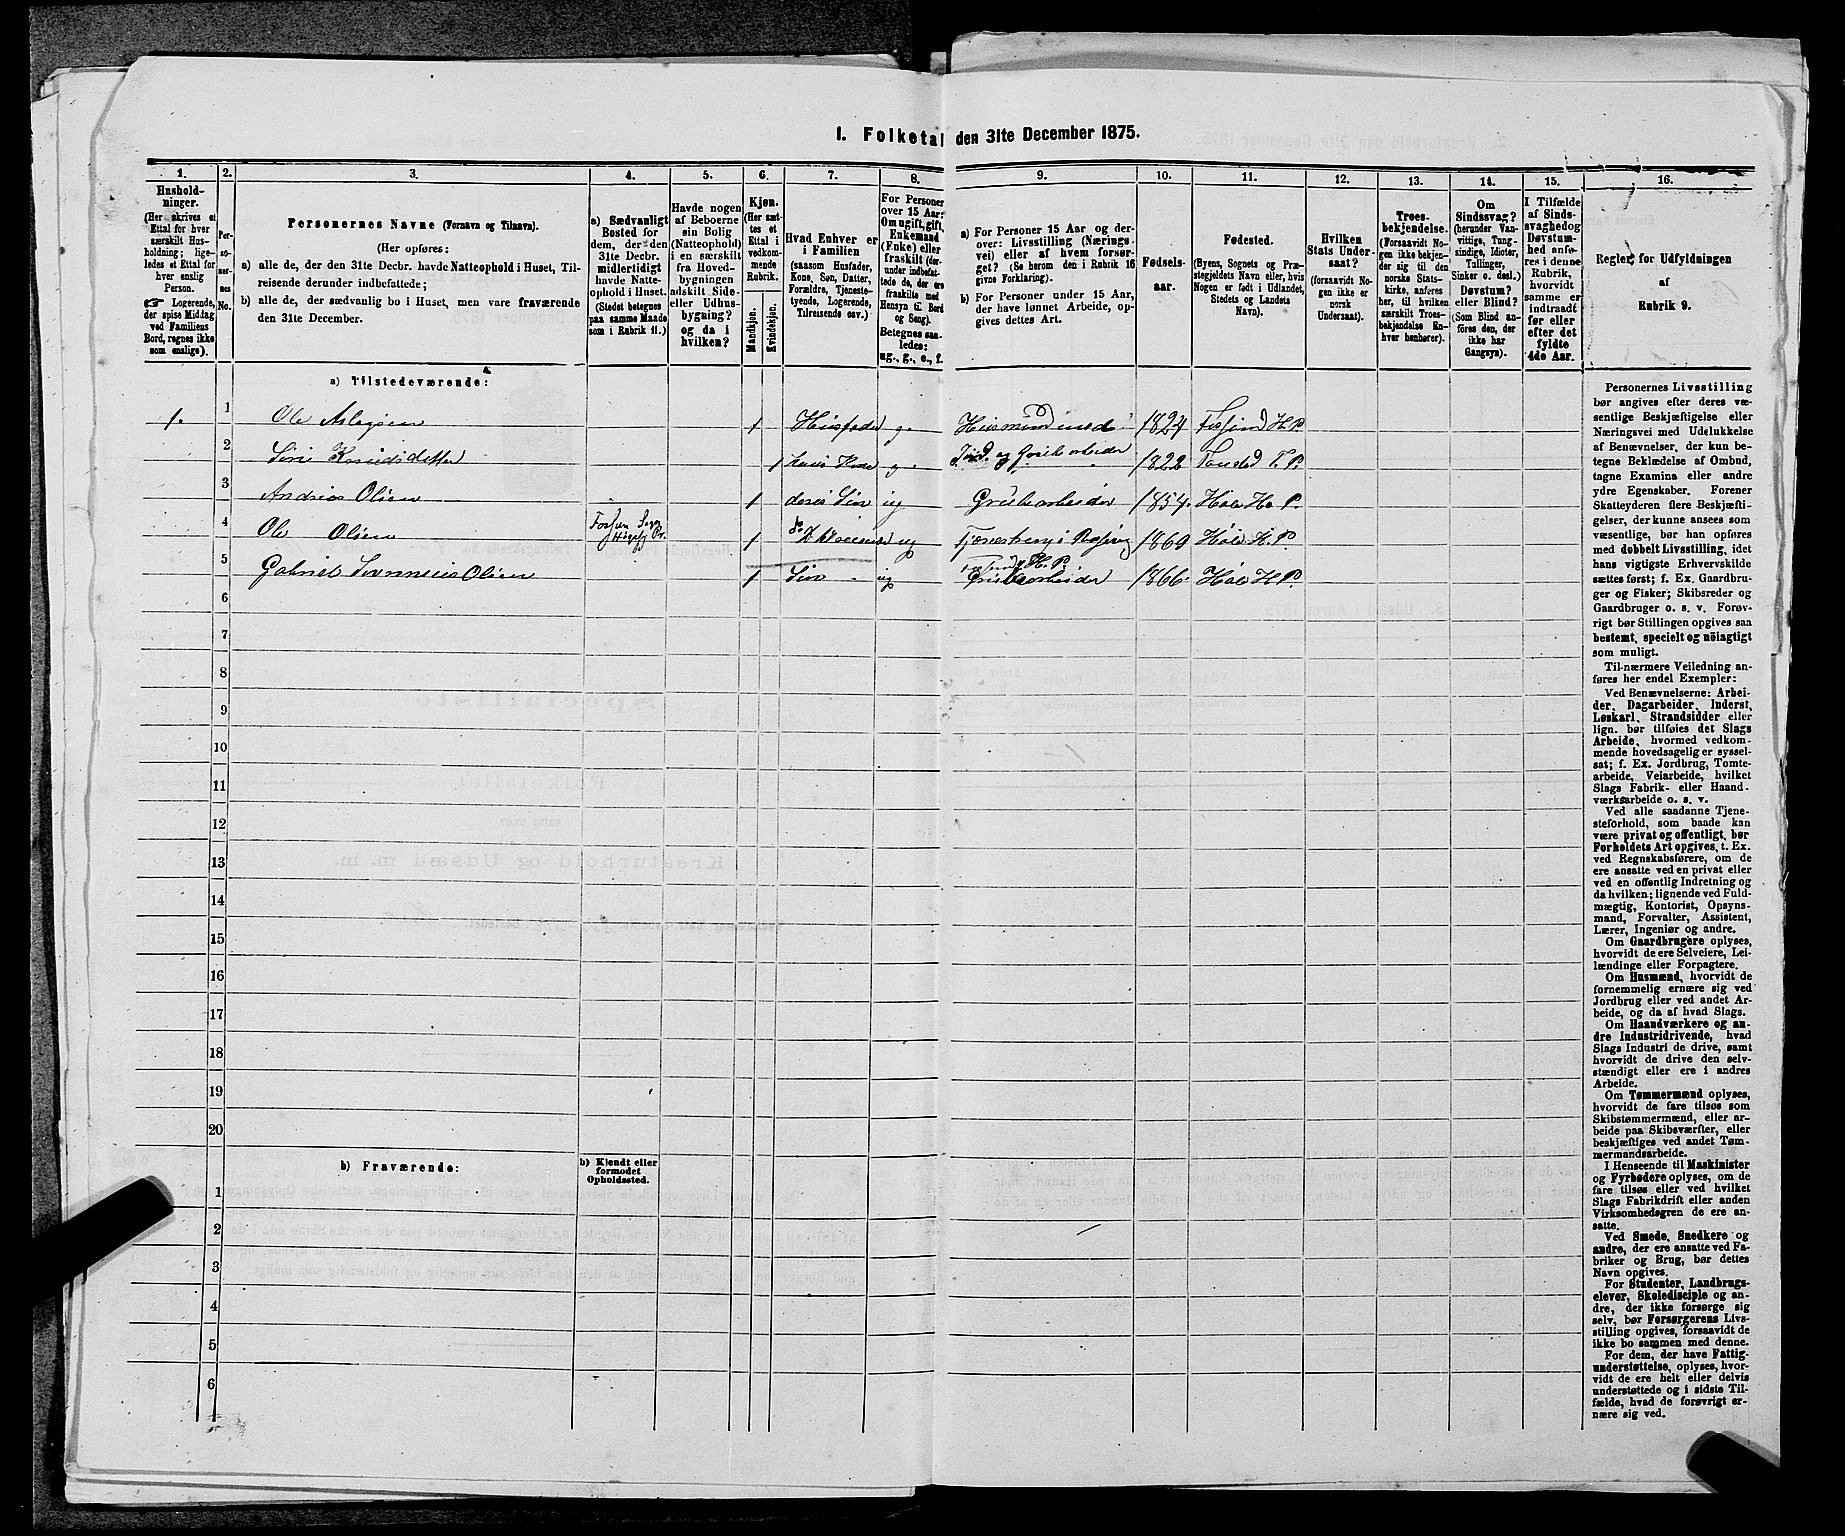 1. Folketal den 31te December 1875.
1.
Hushold-
ninger.
(Her skrives et
Ettal for hver
særskilt Hus-
holdning; lige-
ledes et Ettal for
hver enslig
Person.
☞ Logerende,
der spise Middag
ved Familiens
Bord, regnes ikke
som enslige).
2.
Per-
so-
ner-
nes
No.
3.
Personernes Navne (Fornavn og Tilnavn).
(Her opføres:
a) alle de, der den 31te Decbr. havde Natteophold i Huset, Til-
reisende derunder indbefattede;
b) alle de, der sædvanlig bo i Huset, men vare fraværende
den 31te December.
4.
a) Sædvanligt
Bosted for
dem, der den
31te Decbr.
midlertidigt
havde Natte-
ophold i Huset.
(Stedet betegnes
paa samme Maade
som i Rubrik 11.)
5.
Havde nogen
af Beboerne
sin Bolig
(Natteophold)
i en særskilt
fra Hoved-
bygningen
adskilt Side-
eller Udhus-
bygning?
og da i
hvilken?
6.
Kjøn.
(Her sæt-
tes et
Ettal i
vedkom-
mende
Rubrik.
Mandkjøn.
Kvindekjøn.
7.
Hvad Enhver er
i Familien
(saasom Husfader,
Kone, Søn, Datter,
Forældre, Tjeneste-
tyende, Logerende,
Tilreisende osv.)
8.
For Personer
over 15 Aar:
Om ugift, gift,
Enkemand
(Enke) eller
fraskilt (der-
under indbefat-
tede de, der ere
fraskilte med
Hensyn til Bord
og Seng).
Betegnes saa-
ledes:
ug., g., e., f.
9.
a) For Personer 15 Aar og der-
over: Livsstilling (Nærings-
vei) eller af hvem forsør-
get? (Se herom den i Rubrik 16
givne Forklaring).
b) For Personer under 15 Aar,
der have lønnet Arbeide, op-
gives dettes Art.
10.
Fødsels-
aar.
11.
Fødested.
(Byens, Sognets og Præ-
stegjeldets Navn eller, hvis
Nogen er født i Udlandet,
Stedets og Landets
Navn).
12.
Hvilken
Stats Under-
saat?
(forsaavidt No-
gen ikke er
norsk
Undersaat).
13.
Troes-
bekjendelse.
(Forsaavidt No-
gen ikke bekjen-
der sig til den
norske Stats-
kirke, anføres
her, til hvilken
særskilt Troes-
bekjendelse En-
hver henhører).
14.
Om
Sindssvag?
(herunder Van-
vittige, Tung-
sindige, Idioter,
Tullinger,
Sinker o. desl.)
Døvstum?
eller Blind?
(Som Blind an-
føres den, der
ikke har
Gangsyn).
15.
I Tilfælde
af Sinds-
svaghed og
Døvstum-
hed anfø-
res i denne
Rubrik,
hvorvidt
samme er
indtraadt
før eller
efter det
fyldte
4de Aar.
16.
Regler for Udfyldningen
af
Rubrik 9.
a) Tilstedeværende:
1. 1 Ole Aslagsen 1 Husfader g. Husmand med 1824 Fosjord H. P.
2 Siri Knudsdatter 1 hans Kone g. Jord. og Grubearbeider 1822
3 Andreas Olsen 1 deres Søn ug Grubearbeider 1854. Hole H. P.
4 Ole Olsen 1 ug 1860 Hole H. P.
5 Gabriel Olsen 1 Søn ug Grubearbeider 1866. Hole H. P.
6
7
8
9
10
11
12
13
14
15
16
17
18
19
20
b) Fraværende:
b) Kjendt eller
formodet
Opholdssted.
1
2
3
4
5
6
Personernes Livsstilling
bør angives efter deres væ-
sentlige Beskjæftigelse eller
Næringsvei med Udelukkelse
af Benævnelser, der kun be-
tegne Beklædelse af Ombud,
tagne Examina eller andre
ydre Egenskaber. Forener
Skatteyderen flere Beskjæfti-
gelser, der kunne ansees som
væsentlige, bør han opføres
med dobbelt Livsstilling, idet
hans vigtigste Erhvervskilde
sættes først; f. Ex. Gaardbru-
ger og Fisker; Skibsreder og
Gaardbruger o. s. v. Forøv-
rigt bør Stillingen opgives saa
bestemt, specielt og nøiagtigt
som muligt.
Til nærmere Veiledning an-
føres her endel Exempler:
Ved Benævnelserne: Arbei-
der, Dagarbeider, Inderst,
Løskarl, Strandsidder eller
lign. bør tilføies det Slags
Arbeide, hvormed vedkom-
mende hovedsagelig er syssel-
sat; f. Ex. Jordbrug, Tomte-
arbeide, Veiarbeide, hvilket
Slags Fabrik- eller Haand-
værksarbeide o. s. v.
Ved alle saadanne Tjene-
steforhold, som baade kan
være privat og offentligt, bør
Forholdets Art opgives, t. Ex.
ved Regnskabsførere, om de
ere ansatte ved en privat eller
ved en offentlig Indretning og
da hvilken; lignende ved Fuld-
mægtig, Kontorist, Opsyns-
mand, Forvalter, Assistent,
Lærer, Ingeniør og andre.
Om Gaardbrugere oplyses,
hvorvidt de ere Selveiere, Lei-
lændinge eller Forpagtere.
Om Husmænd, hvorvidt de
fornemmelig ernære sig ved
Jordbrug eller ved andet Ar-
beide, og da af hvad Slags.
Om Haandværkere og an-
dre Industridrivende, hvad
Slags Industri de drive, samt
hvorvidt de drive den selv-
stændigt eller ere i andres
Arbeide.
Om Tømmermænd oplyses,
hvorvidt de fare tilsøs som
Skibstømmermænd, eller ar-
beide paa Skibsværfter, eller
beskjæftiges ved andet Tøm-
mermandsarbeide.
I Henseende til Maskinister
og Fyrbødere oplyses, om de
fare tilsøs eller ved hvilket
Slags Fabrikdrift eller anden
Virksomhedsgren de ere an-
satte.
Ved Smede, Snedkere og
andre, der ere ansatte ved Fa-
briker og Brug, bør dettes
Navn opgives.
For Studenter, Landbrugs-
elever, Skoledisciple og an-
dre, der ikke forsørge sig
selv, bør Forsørgerens Livs-
stilling opgives, forsaavidt de
ikke bo sammen med denne.
For dem, der have Fattig-
understøttelse, oplyses, hvor-
vidt de ere helt eller delvis
understøttede og i sidste Til-
fælde, hvad de forøvrigt er-
nære sig ved.